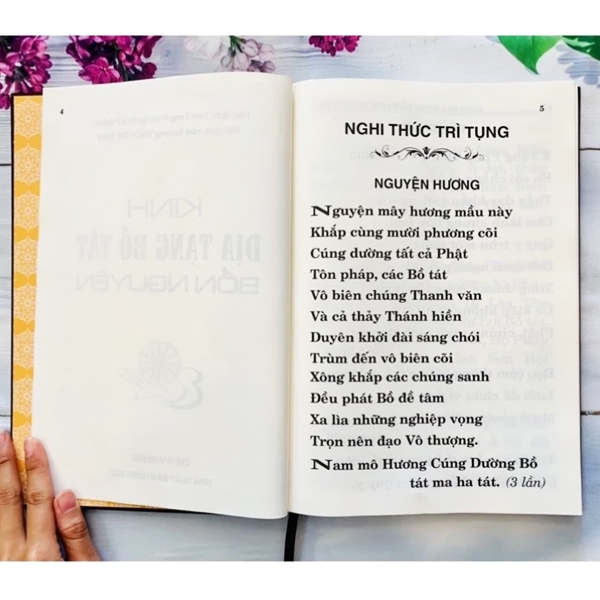 4
KINH
ĐỊA TẠNG BỒ TÁT
BỔN NGUYỆN
5
NGHI THỨC TRÌ TỤNG
NGUYỆN HƯƠNG
Nguyện mây hương mầu này
Khắp cùng mười phương cõi
Cúng dường tất cả Phật
Tôn pháp, các Bồ tát
Vô biên chúng Thanh văn
Và cả thảy Thánh hiền
Duyên khởi đài sáng chói
Trùm đến vô biên cõi
Xông khắp các chúng sanh
Đều phát Bồ đề tâm
Xa lìa những nghiệp vọng
Trọn nên đạo Vô thượng.
Nam mô Hương Cúng Dường Bồ
tát ma ha tát. (3 lần)